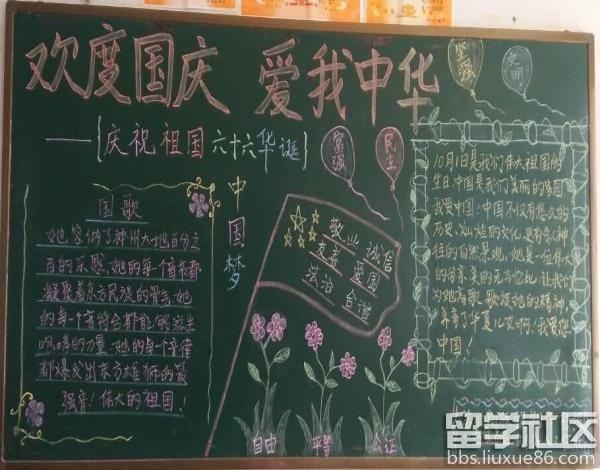 欢度国庆 爱我中华
——{庆祝祖国六十六华诞}
坚强
文明
富强
民主
中国梦
国歌
她,容纳了神州大地百分之
百的乐感,她的每一个音节都
凝聚着东方民族的骨气,她
的每一个音符台都能够派生
的力量,她的每一个音律
都爆发出东方雄狮的最
强音!伟大的祖国!
敬业 诚信
爱国
法治
自由
平等
公正
10月1日是我们伟大祖国的
生日,中国是我们美丽的家园
我爱中国,中国不仅有悠久的
历史、灿烂的文化,还有令人神
往的自然景观,她是一位伟大
的母亲,美的无与伦比,让我们
为她高歌,歌颂她的精神,
养育了华夏儿女啊,我爱您
中国!
留学社区
bbs.liuxue86.com